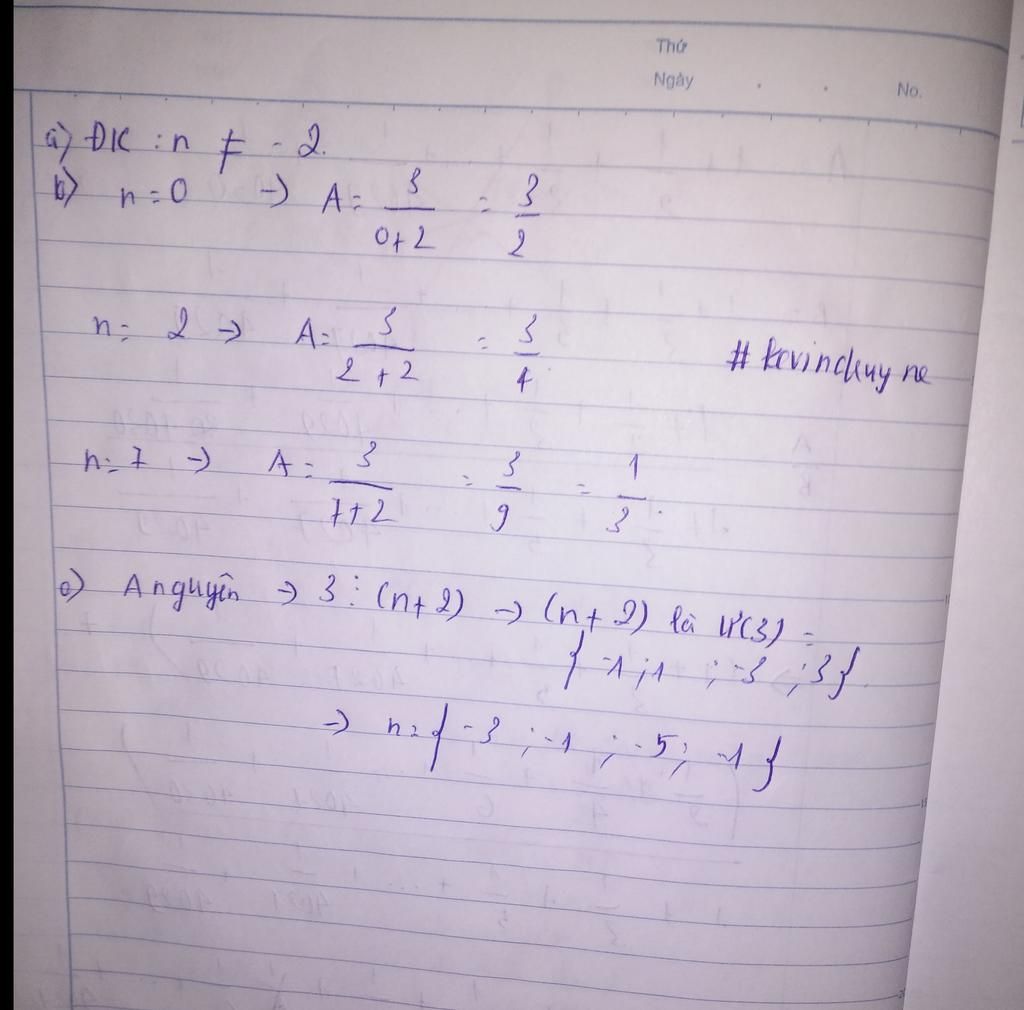 Thứ
Ngày . . No.
a) ĐK : n ≠ -2.
b) n = 0 -> A = 3/(0+2) = 3/2
n = 2 -> A = 3/(2+2) = 3/4
# kevinchuy ne
n = 7 -> A = 3/(7+2) = 3/9 = 1/3.
c) A nguyên -> 3 ⋮ (n+2) -> (n+2) là Ư(3) =
{ -1 ; 1 ; -3 ; 3 }.
-> n = { -3 ; -1 ; -5 ; -1 }